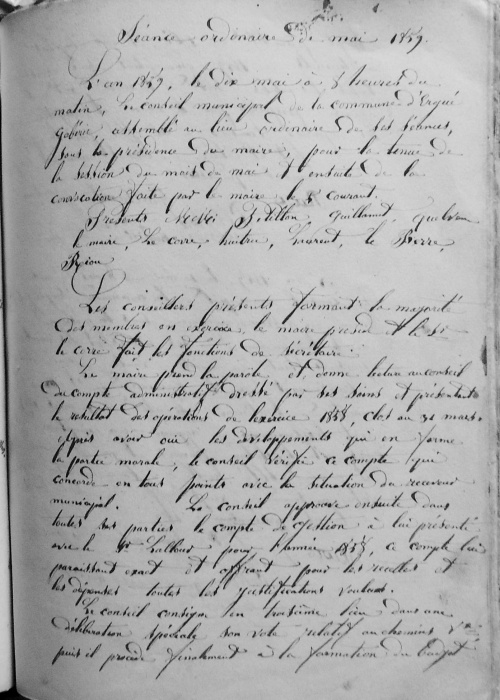 Séance ordinaire de mai 1859.
L'an 1859, le dix mai à 5 heures du
matin, le conseil municipal de la commune d'Ergué
Gabéric, assemblé au lieu ordinaire de ses séances,
sous la présidence du maire, pour la tenue de
la session du mois de mai et ensuite de la
convocation faite par le maire le courant.
Présents Guillamet,
le maire, Le corre, huitric, Laurent, le Berre,
Les conseillers présents formant la majorité
des membres en exercice, le maire préside et le Sr
le corre fait les fonctions de Secrétaire.
Le maire prend la parole et donne lecture au conseil
du compte administratif dressé par ses soins et présentant
le résultat des opérations de l'exercice 1858, clos au 31 mars.
Après avoir oui les développements qui en forme
la partie morale, le conseil vérifie ce compte qui
concorde en tous points avec la situation du receveur
municipal. Le conseil approuve ensuite dans
toutes ses parties le compte de gestion à lui présenté
par le Sr pour l'année 1858, ce compte lui
paraissant exact et offrant pour les recettes et
les dépenses toutes les justifications voulues.
Le conseil consigne en troisième lieu dans une
délibération spéciale son vote relatif au chemins
puis il procède finalement à la formation du budget